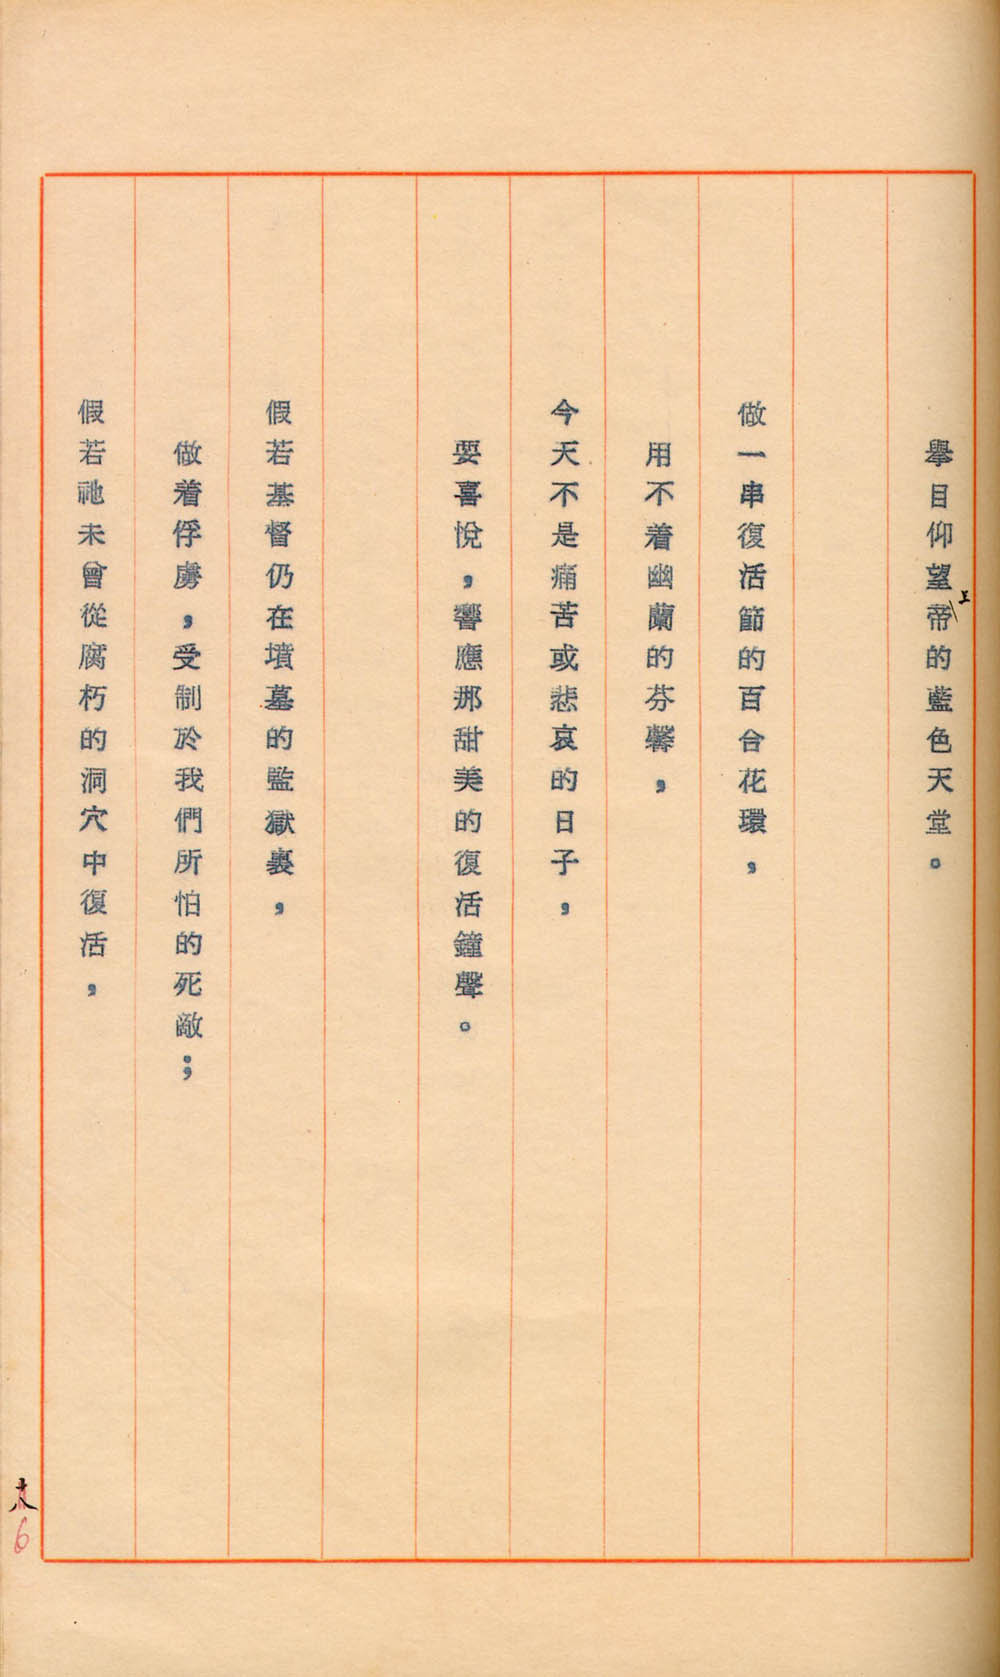 舉目仰望上帝的藍色天堂。
做一串復活節的百合花環，
用不着幽蘭的芬馨，
今天不是痛苦或悲哀的日子，
要喜悅，響應那甜美的復活鐘聲。
假若基督仍在墳墓的監獄裏，
做着俘虜，受制於我們所怕的死敵；
假若祂未曾從腐朽的洞穴中復活，
十八
6